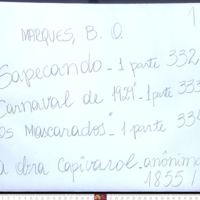 1
MARQUES, B. O.
Sapecando - 1 parte 332
Carnaval de 1929" - 1 parte 333
Os Mascarados" - 1 parte 334
a obra Capivarol - anônimo
1855 /